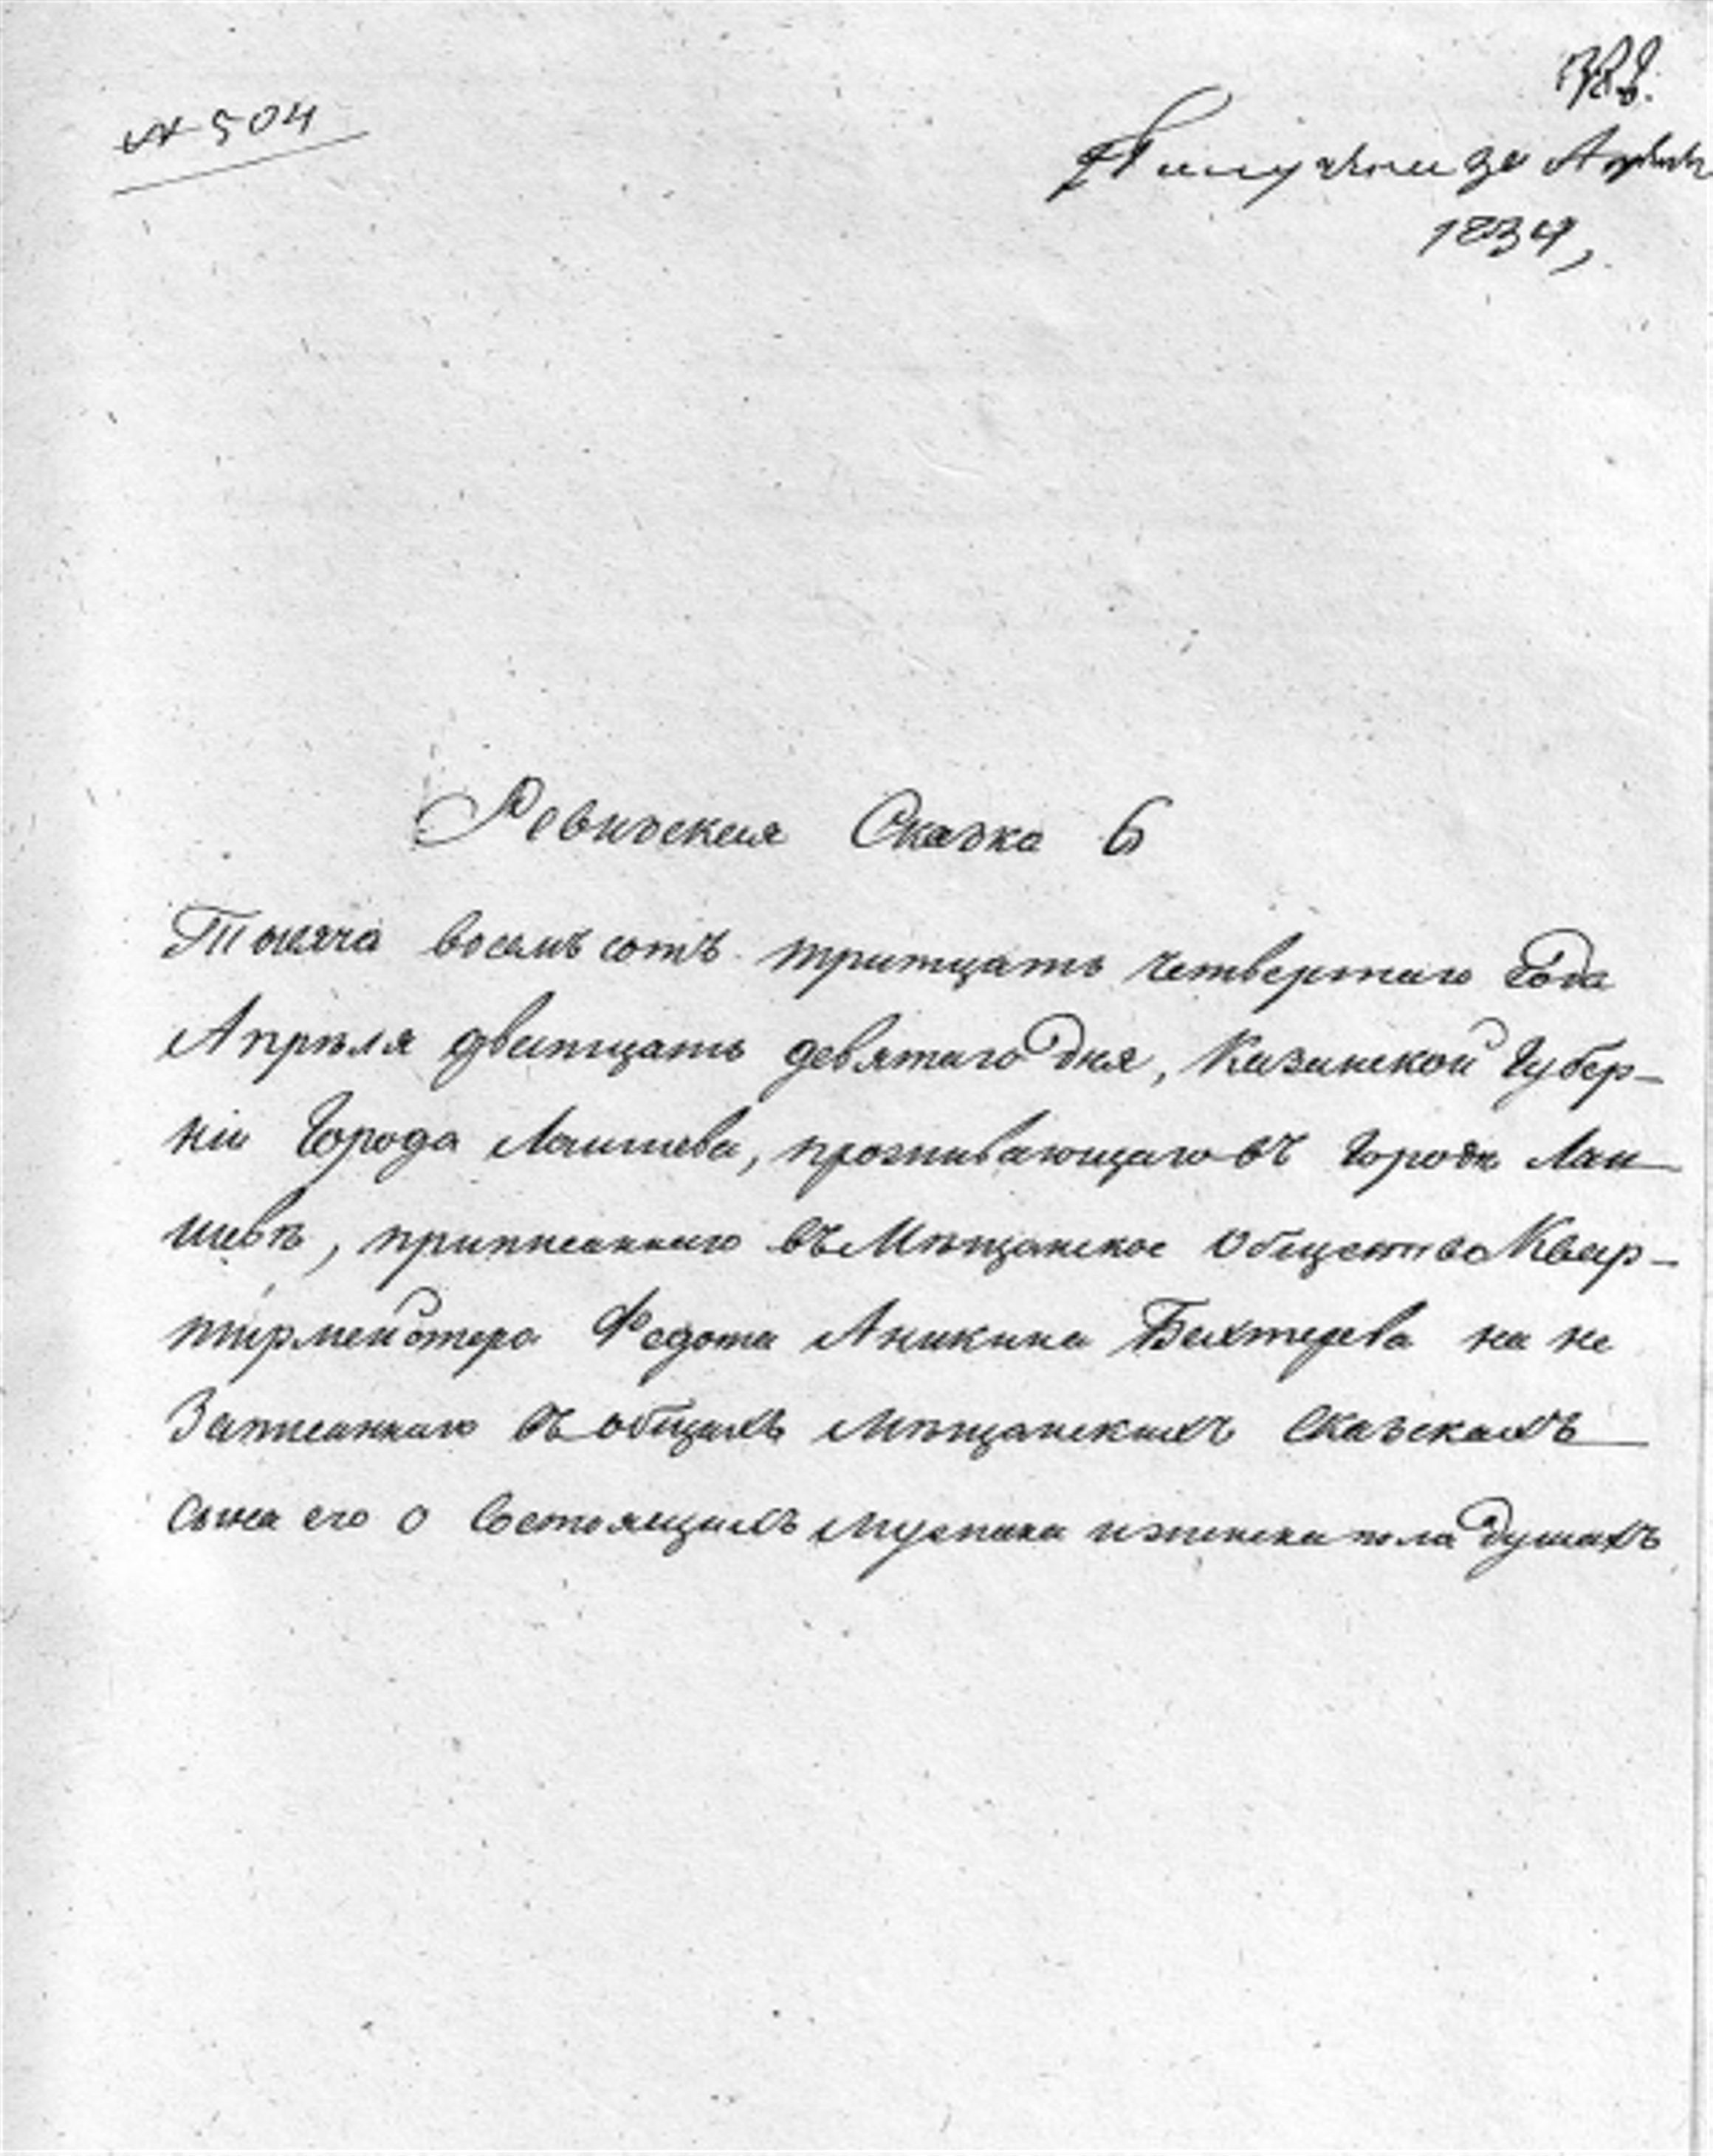 № 504
Получена 30 Апреля
1834,
Ревизская Сказка 6
Тысяча восемъ сотъ тритцать четвертаго Года
Апрѣля дватцать девятаго дня, Казанской Губер-
ніи Города Лаишева, проживающаго въ Городѣ Лаи-
шевѣ, приписаннаго въ Мѣщанское Общество Квар-
тирмейстера Федота Аникина Бахтерева на не
Записаннаго въ общихъ Мѣщанскихъ Сказскахъ
сына его о Состоящихъ мужска и женска пола душахъ